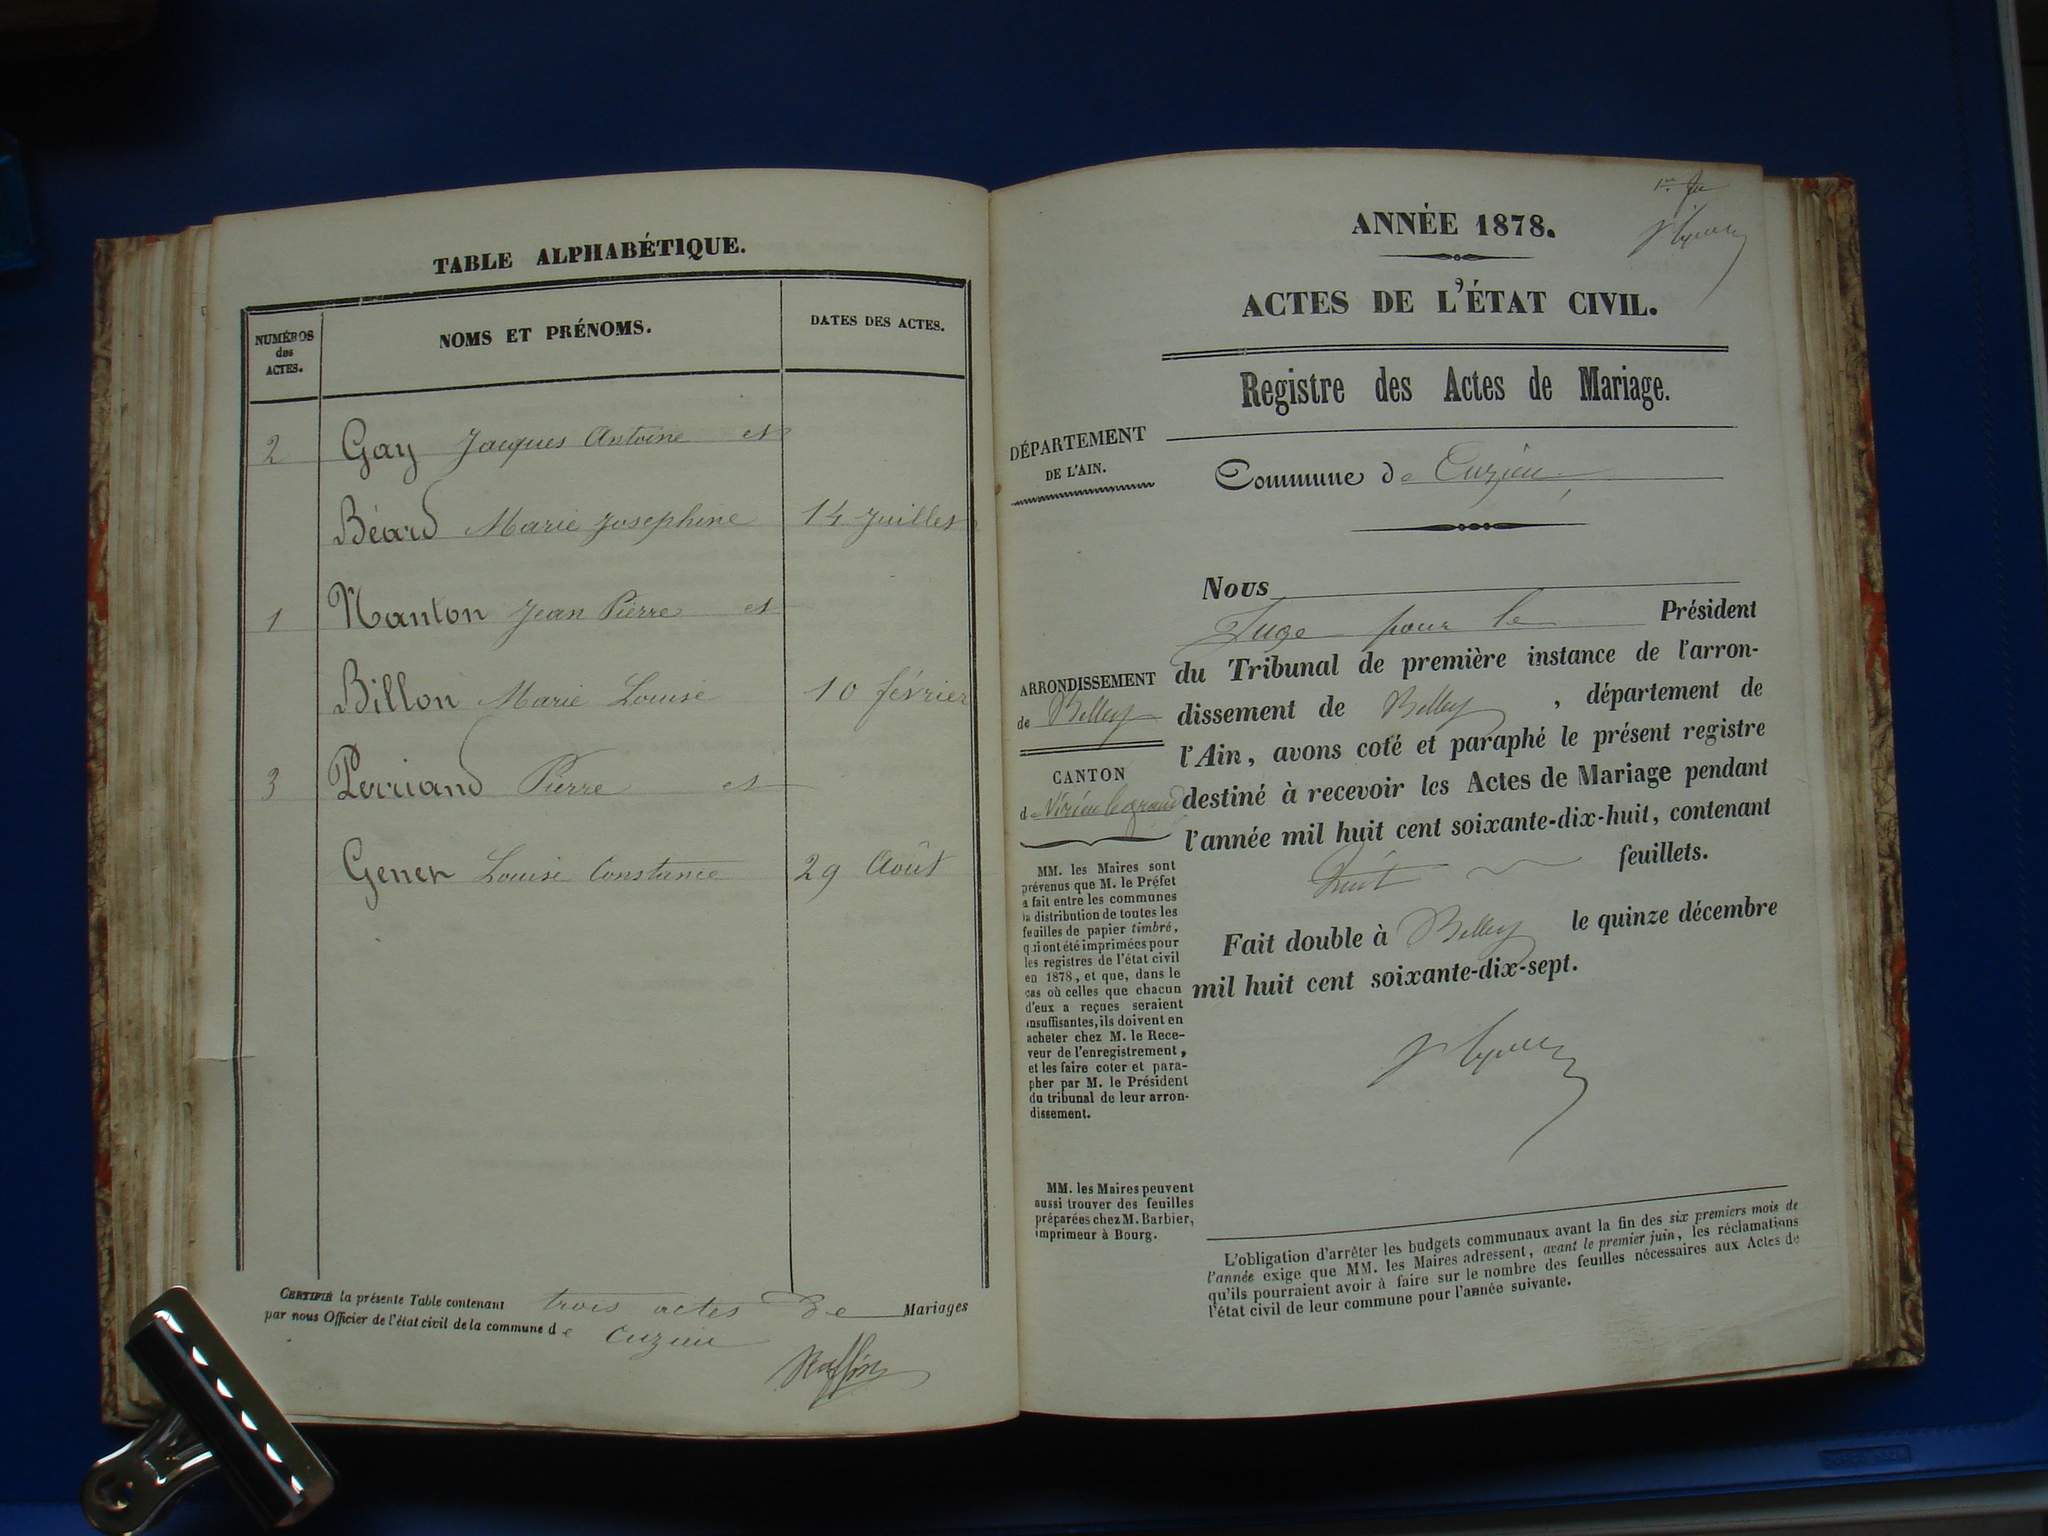 TABLE ALPHABÉTIQUE.
NUMÉROS
des
ACTES.
NOMS ET PRÉNOMS.
DATES DES ACTES.
2 Gay Jacques Antoine et
Béard Marie Josephine 14 Juillet
1 Nanton Jean Pierre et
Billon Marie Louise 10 février
3 Perriand Pierre et
Gener Louise Constance 29 Août
CERTIFIÉ la présente Table contenant trois actes de Mariages
par nous Officier de l'état civil de la commune de Cuzieu
Raffin
ANNÉE 1878.
ACTES DE L'ÉTAT CIVIL.
Registre des Actes de Mariage.
DÉPARTEMENT
DE L'AIN.
Commune de Cuzieu
ARRONDISSEMENT
de Belley
CANTON
de Virieu le grand
MM. les Maires sont
prévenus que M. le Préfet
a fait entre les communes
la distribution de toutes les
feuilles de papier timbré,
qui ont été imprimées pour
les registres de l'état civil
en 1878, et que, dans le
cas où celles que chacun
d'eux a reçues seraient
insuffisantes, ils doivent en
acheter chez M. le Rece-
veur de l'enregistrement,
et les faire coter et para-
pher par M. le Président
du tribunal de leur arron-
dissement.
MM. les Maires peuvent
aussi trouver des feuilles
préparées chez M. Barbier,
imprimeur à Bourg.
Nous
Juge pour le Président
du Tribunal de première instance de l'arron-
dissement de Belley, département de
l'Ain, avons coté et paraphé le présent registre
destiné à recevoir les Actes de Mariage pendant
l'année mil huit cent soixante-dix-huit, contenant
huit feuillets.
Fait double à Belley le quinze décembre
mil huit cent soixante-dix-sept.
L'obligation d'arrêter les budgets communaux avant la fin des six premiers mois de
l'année exige que MM. les Maires adressent, avant le premier juin, les réclamations
qu'ils pourraient avoir à faire sur le nombre des feuilles nécessaires aux Actes de
l'état civil de leur commune pour l'année suivante.